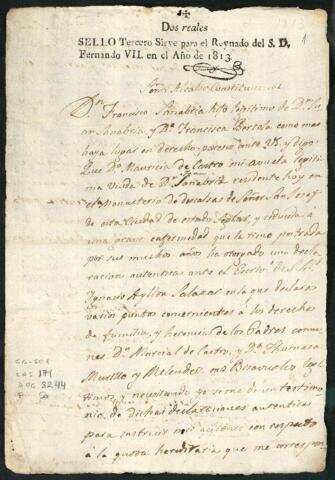 Dos reales
SELLO Tercero Sirve para el Reynado del S. D.
Fernando VII. en el Año de 1813
1
Señor Alcalde Constitucional
Dn. Francisco Sanabria hijo lexitimo de Dn. Ju
an Sanabria, y Da. Francisca Bertola como mas
haya lugar en derecho, paresco ante VS. y digo
Que Da. Mauricia de Castro mi avuela legiti
ma viuda de Dn. Sanabria recidente hoy en
el Monasterio de descalsas de Señor San José y
de esta Ciudad de estado seglar, y reducida a
una grave enfermedad que la tiene postrada
por sus muchos años ha otorgado una decla
racion autentica ante el Escrib.
Ignacio Ayllon Salazar en la que declara
varios puntos concernientes à los derechos
de familia, y herencia de los Padres comu
nes Dn. Marcial de Castro, y Da. Thomasa
Murillo y Melendes, mis Bisavuelos legi
timos, y necesitando yo se me de un testimo
nio de dichas declaraciones autenticas
para instruir mis acciones con respecto
à la quota hereditaria que me correspon
CAS 171
DOC 3244